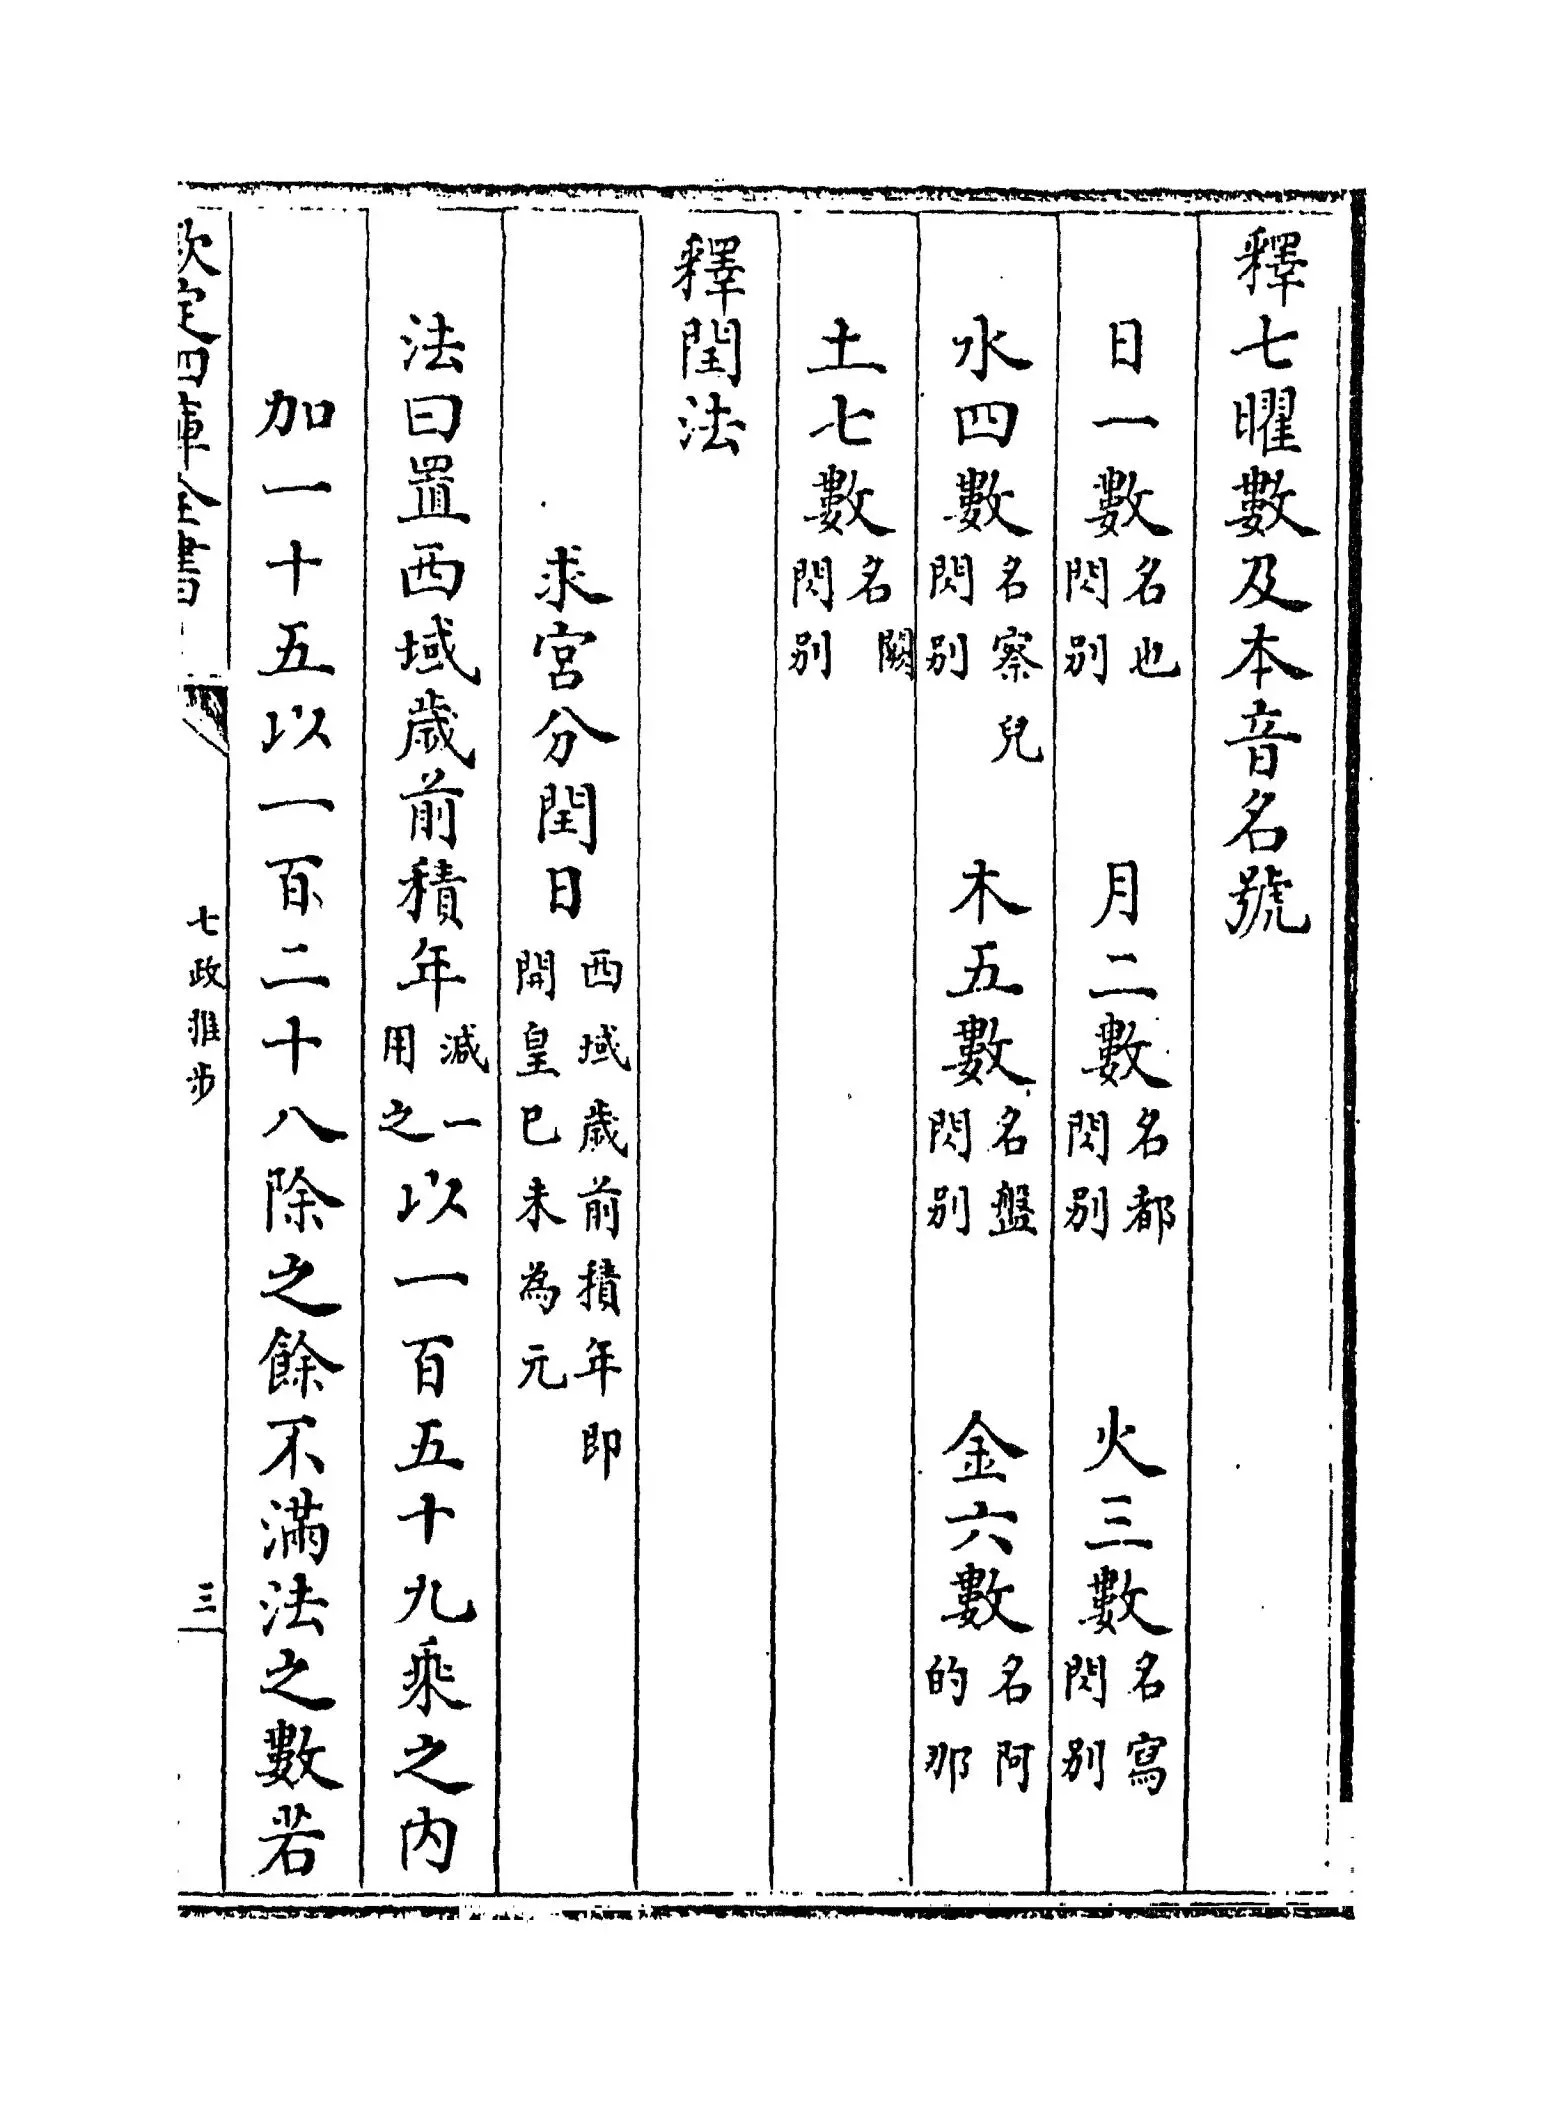 釋七曜數及本音名號
日一數名也閃别　月二數名都閃别　火三數名寫閃别
水四數名察兒閃别　木五數名盤閃别　金六數名阿的那
土七數名闕閃别
釋閏法
求宮分閏日西域歲前積年即開皇巳未為元
法曰置西域歲前積年減一用之以一百五十九乘之内
加一十五以一百二十八除之餘不滿法之數若
欽定四庫全書
七政推步
三